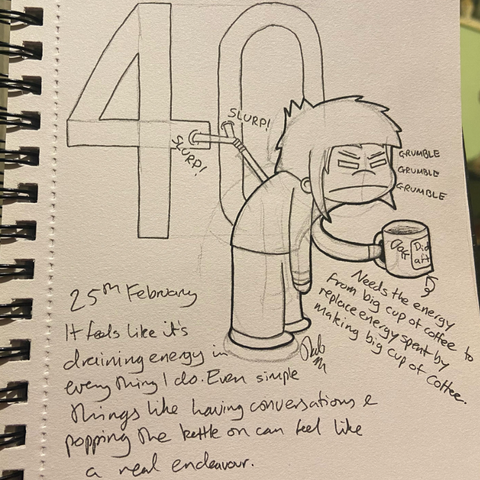 40
SLURP!
SLURP!
GRUMBLE
GRUMBLE
GRUMBLE
Needs the energy
from big cup of coffee to
replace energy spent by
making big cup of coffee.
25th February
It feels like it's
draining energy in
everything I do. Even simple
things like having conversations &
popping the kettle on can feel like
a real endeavour.